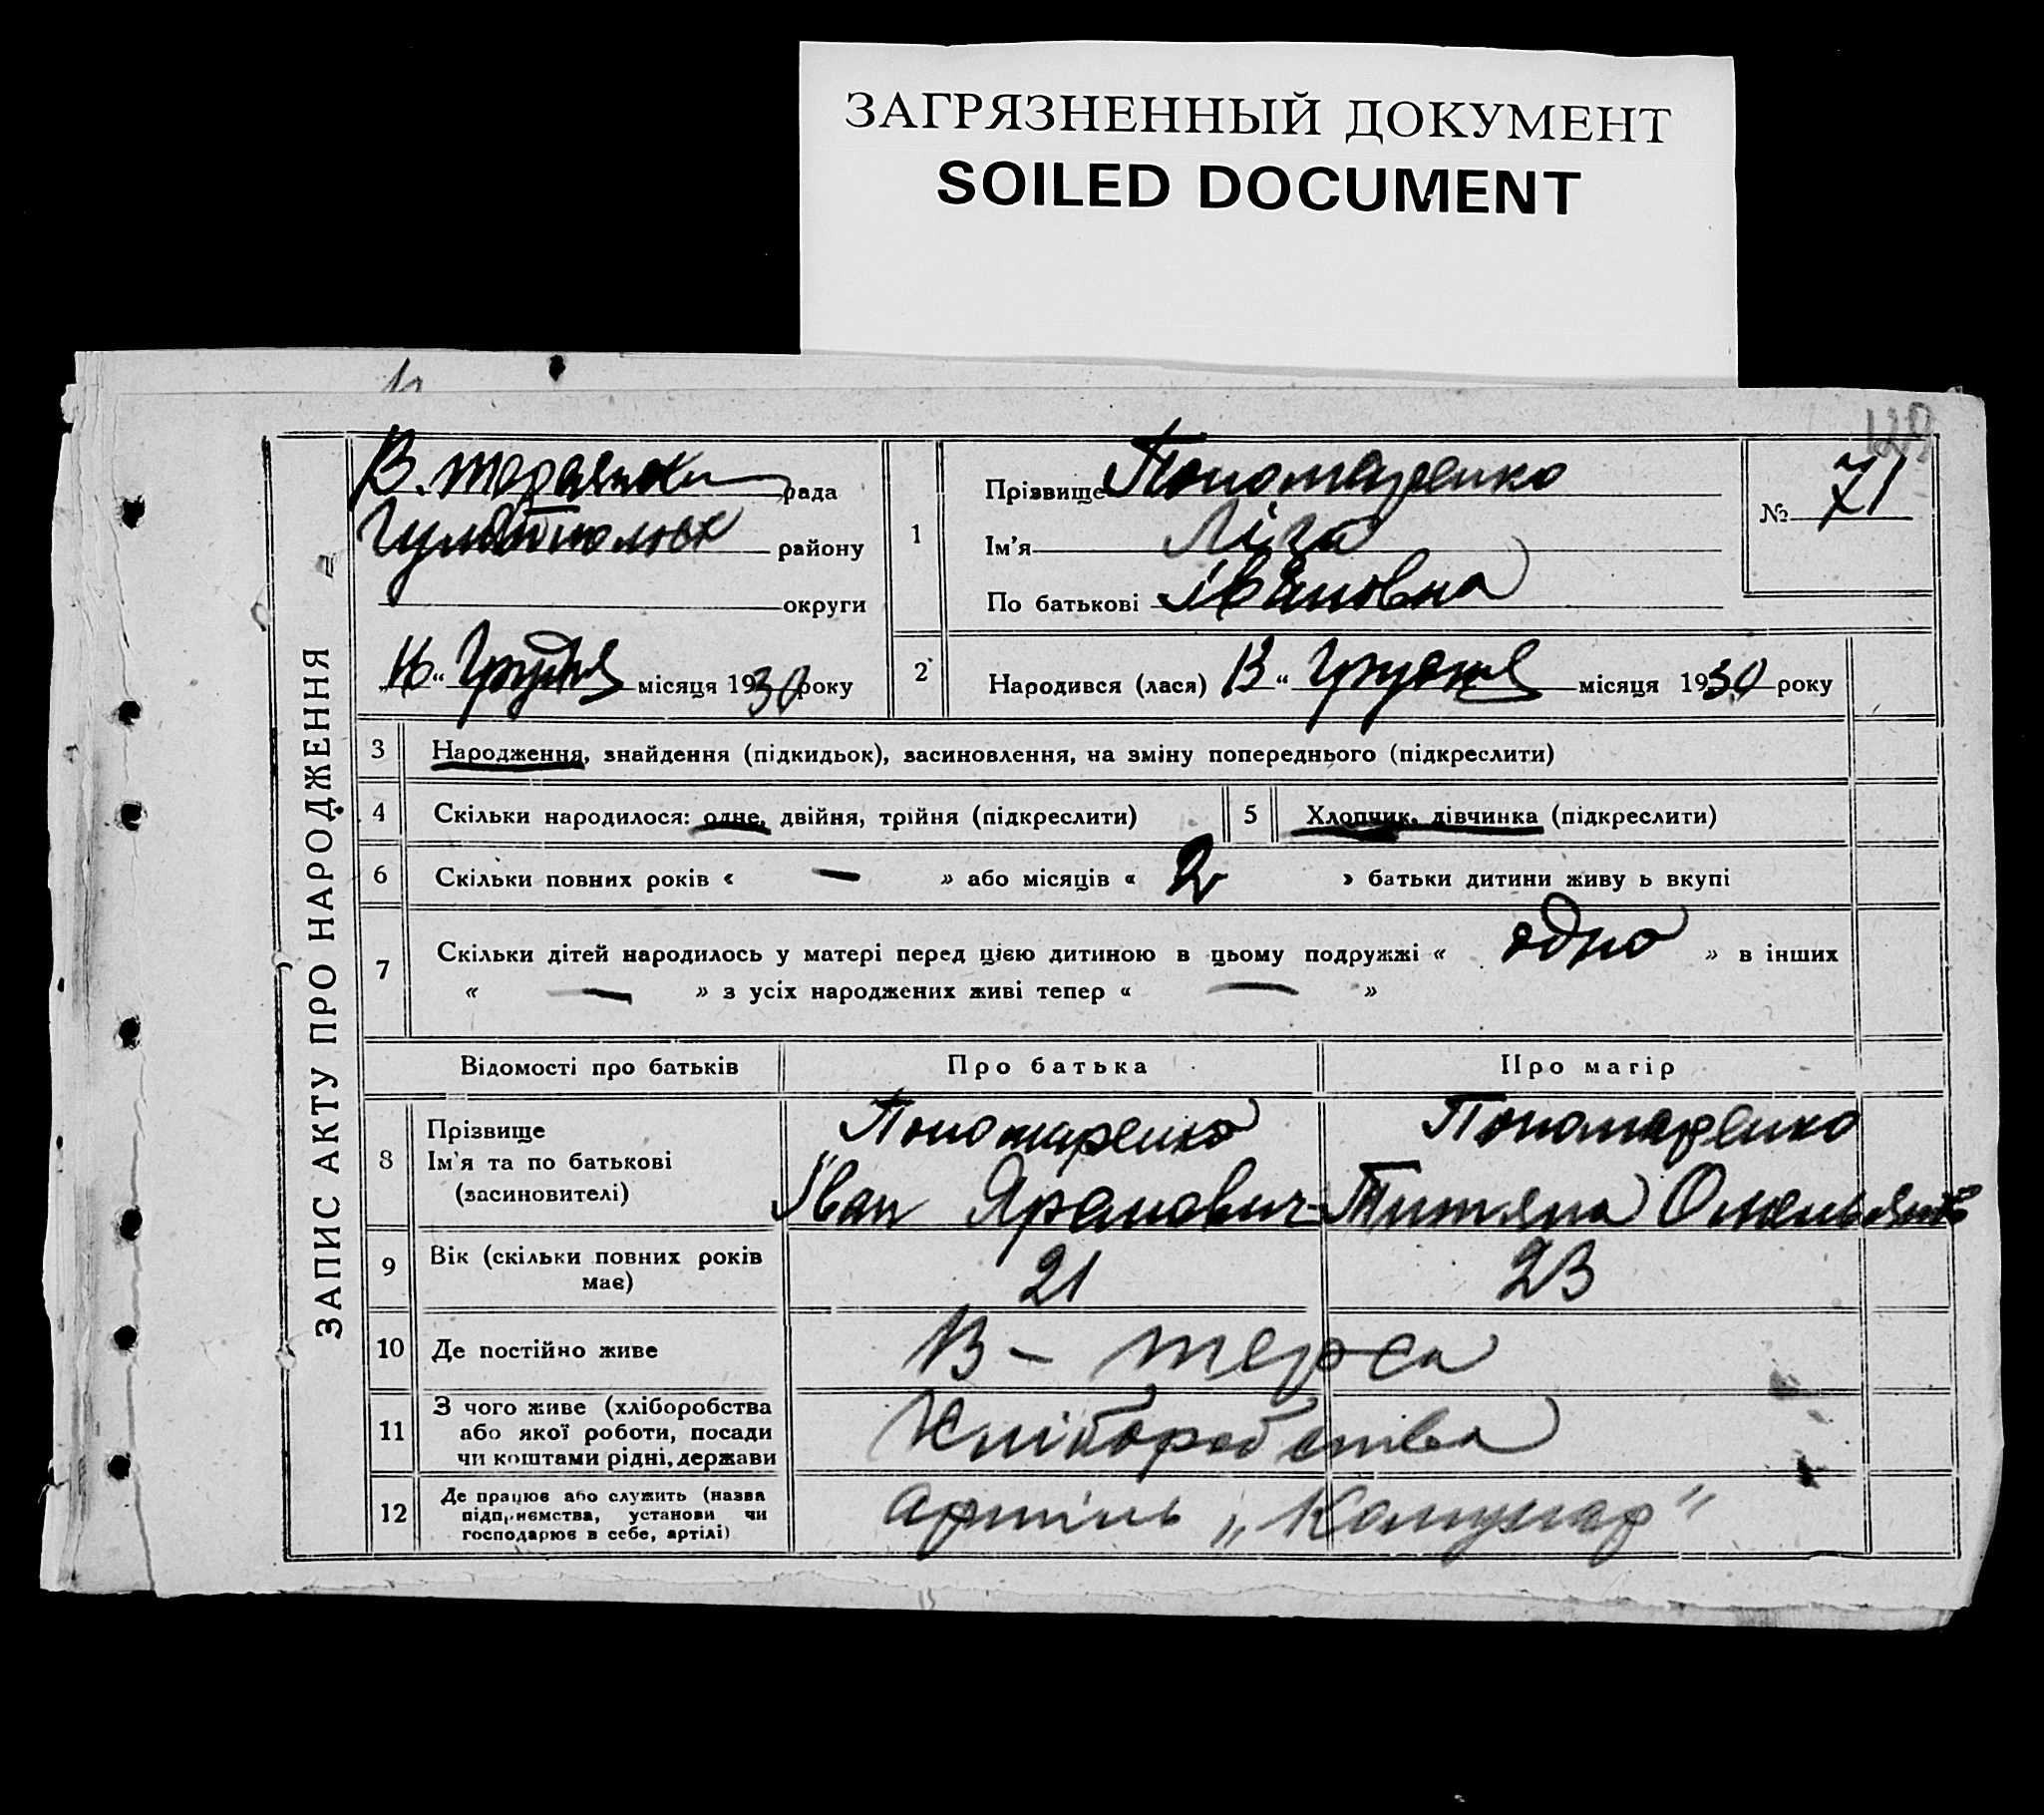 ЗАГРЯЗНЕННЫЙ ДОКУМЕНТ
SOILED DOCUMENT
129
ЗАПИС АКТУ ПРО НАРОДЖЕННЯ
рада
району
округи
„16“ Грудня місяця 1930 року
1 Прізвище Пономаренко
Ім'я Ліза
По батькові Івановна
№ 71
2 Народився (лася) 13 “ Грудня місяця 1930 року
3 Народження, знайдення (підкидьок), засиновлення, на зміну попереднього (підкреслити)
4 Скільки народилося: одне, двійня, трійня (підкреслити)
5 Хлопчик, дівчинка (підкреслити)
6 Скільки повних років « — » або місяців « 2 » батьки дитини живу ь вкупі
7 Скільки дітей народилось у матері перед цією дитиною в цьому подружжі « одно » в інших
« — » з усіх народжених живі тепер « — »
Відомості про батьків Про батька Про матір
8 Прізвище
Ім'я та по батькові
(засиновителі)
Пономаренко
Іван
Пономаренко
9 Вік (скільки повних років
має)
21 23
10 Де постійно живе В - терса
11 З чого живе (хліборобства
або якої роботи, посади
чи коштами рідні, держави
Хліборобства
12 Де працює або служить (назва
підприємства, установи чи
господарює в себе, артілі)
артіль „